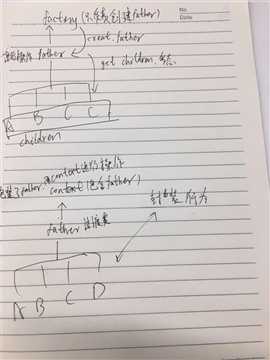 No
Date
factory (只负责创建father)
creat father
father
get children
A B C C
children
包含了father, 对context进行操作
context (包含father)
father 抽象类
封装行为
A B C D